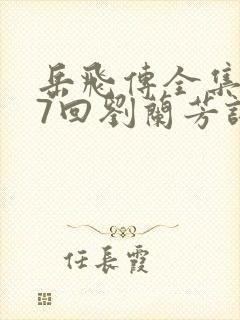 岳飛傳全集
7回劉蘭芳
任長霞